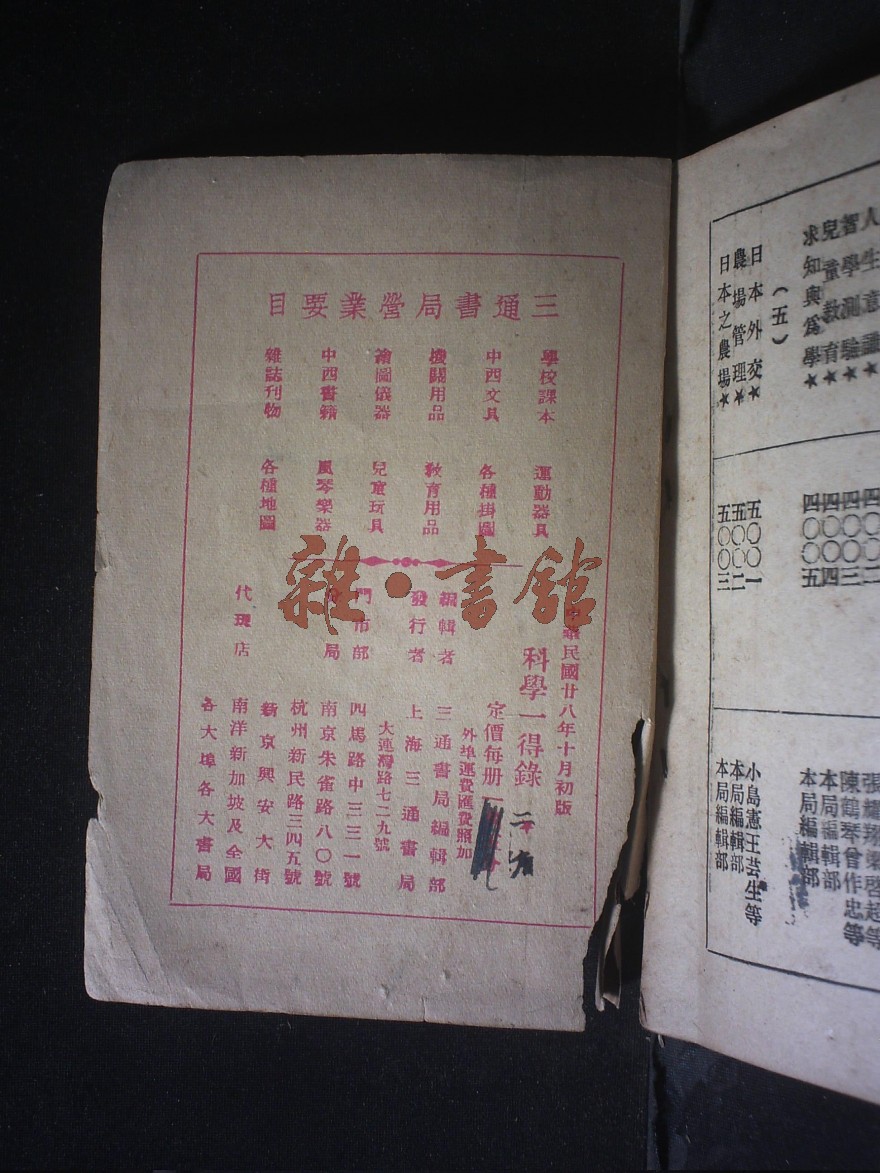 三通書局營業要目
學校課本
中西文具
機關用品
繪圖儀器
中西書籍
雜誌刊物
運動器具
各種掛圖
教育用品
兒童玩具
風琴樂器
各種地圖
雜·書館
民國廿八年十月初版
科學一得錄
定價每册
二角
外埠運費匯費照加
編輯者 三通書局編輯部
發行者 上海三通書局
大連灣路七二九號
門市部 四馬路中三三一號
局 南京朱雀路八〇號
杭州新民路三四五號
新京興安大街
代理店 南洋新加坡及全國
各大埠各大書局
人生意識★
智學測驗★ 四〇〇三
兒童教育★ 四〇〇四 本局編輯部
求知與爲學★ 四〇〇五 本局編輯部
(五)
日本外交★ 五〇〇一 小島憲王芸生等
農場管理★ 五〇〇二 本局編輯部
日本之農場★ 五〇〇三 本局編輯部